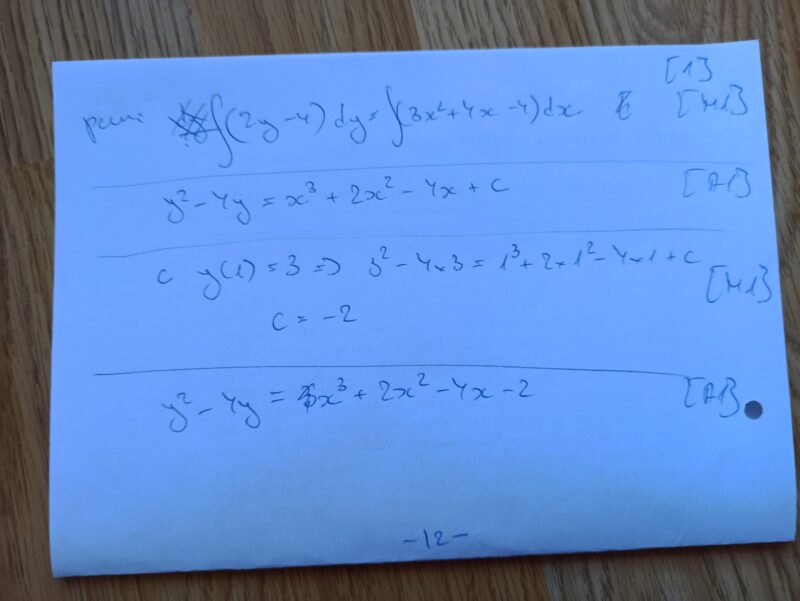 [1]
∫(2y-4)dy = ∫(3x²+4x-4)dx [M1]
y²-4y = x³+2x²-4x+c [A1]
c y(1)=3 => 3²-4×3 = 1³+2×1²-4×1+c [M1]
c = -2
y²-4y = x³+2x²-4x-2 [A1]
-12-